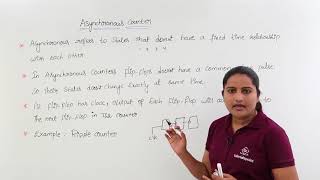 Asynchronous Counter
* Asynchronous refers to states that doesnt have a fixed time relationship
with each other.
* In Asynchronous Counters flip-flops doesnt have a common clk pulse
so their States doesnt change exactly at same time.
* 1st flip-flop has clock, output of Each flip-flop will act as
the next flip-flop in the counter
* Example: Ripple counter
clk
tutorialspoint